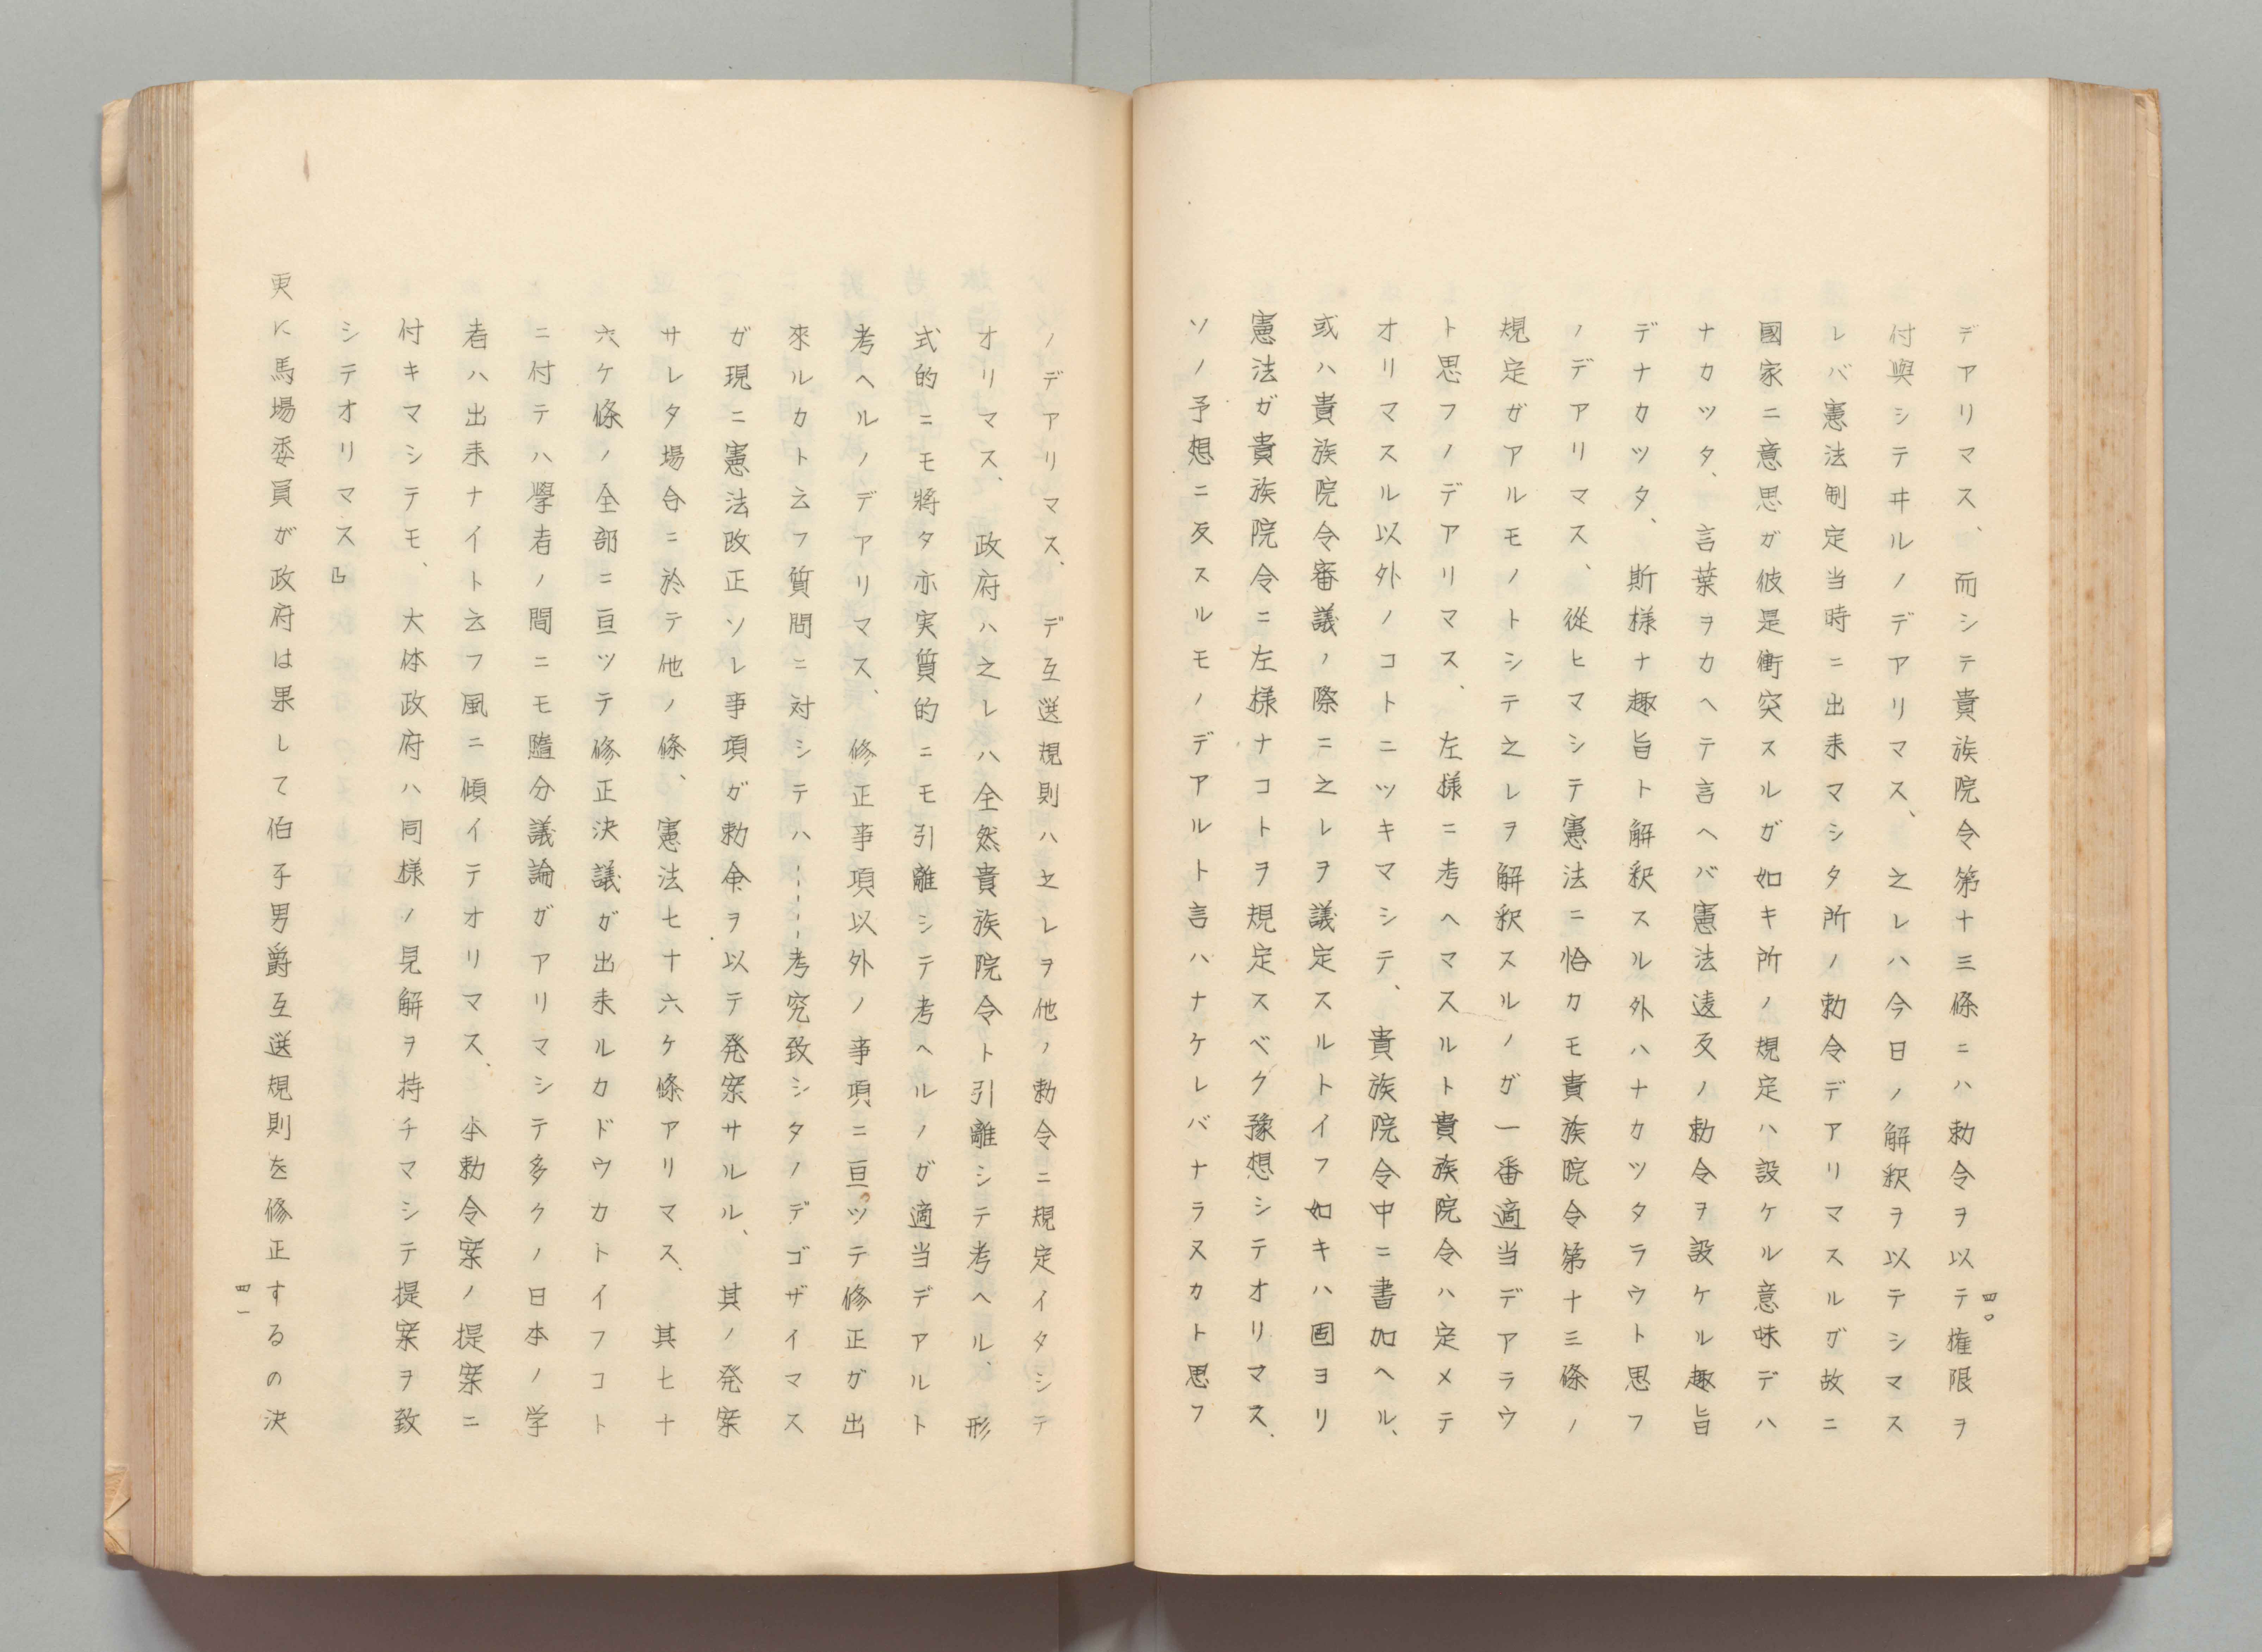 デアリマス、而シテ貴族院令第十三條ニハ勅令ヲ以テ権限ヲ
付與シテヰルノデアリマス、之レハ今日ノ解釈ヲ以テシマス
レバ憲法制定当時ニ出来マシタ所ノ勅令デアリマスルガ故ニ
國家ニ意思ガ彼是衝突スルガ如キ所ノ規定ハ設ケル意味デハ
ナカツタ、言葉ヲカヘテ言ヘバ憲法違反ノ勅令ヲ設ケル趣旨
デナカツタ、斯様ナ趣旨ト解釈スル外ハナカツタラウト思フ
ノデアリマス、從ヒマシテ憲法ニ恰カモ貴族院令第十三條ノ
規定ガアルモノトシテ之レヲ解釈スルノガ一番適当デアラウ
ト思フノデアリマス、左様ニ考ヘマスルト貴族院令ハ定メテ
オリマスル以外ノコトニツキマシテ、貴族院令中ニ書加ヘル、
或ハ貴族院令審議ノ際ニ之レヲ議定スルトイフ如キハ固ヨリ
憲法ガ貴族院令ニ左様ナコトヲ規定スベク豫想シテオリマス、
ソノ予想ニ反スルモノデアルト言ハナケレバナラヌカト思フ
四〇
ノデアリマス、デ互選規則ハ之レヲ他ノ勅令ニ規定イタシテ
オリマス、政府ハ之レハ全然貴族院令ト引離シテ考ヘル、形
式的ニモ將タ亦実質的ニモ引離シテ考ヘルノガ適当デアルト
考ヘルノデアリマス、修正事項以外ノ事項ニ亘ツテ修正ガ出
來ルカト云フ質問ニ対シテハ‥‥‥考究致シタノデゴザイマス
ガ現ニ憲法改正ソレ事項ガ勅命ヲ以テ発案サルル、其ノ発案
サレタ場合ニ於テ他ノ條、憲法七十六ケ條アリマス、其七十
六ケ條ノ全部ニ亘ツテ修正決議ガ出来ルカドウカトイフコト
ニ付テハ學者ノ間ニモ隨分議論ガアリマシテ多クノ日本ノ学
者ハ出来ナイト云フ風ニ傾イテオリマス、本勅令案ノ提案ニ
付キマシテモ、大体政府ハ同様ノ見解ヲ持チマシテ提案ヲ致
シテオリマス』
更に馬場委員が政府は果して伯子男爵互選規則を修正するの決
四一